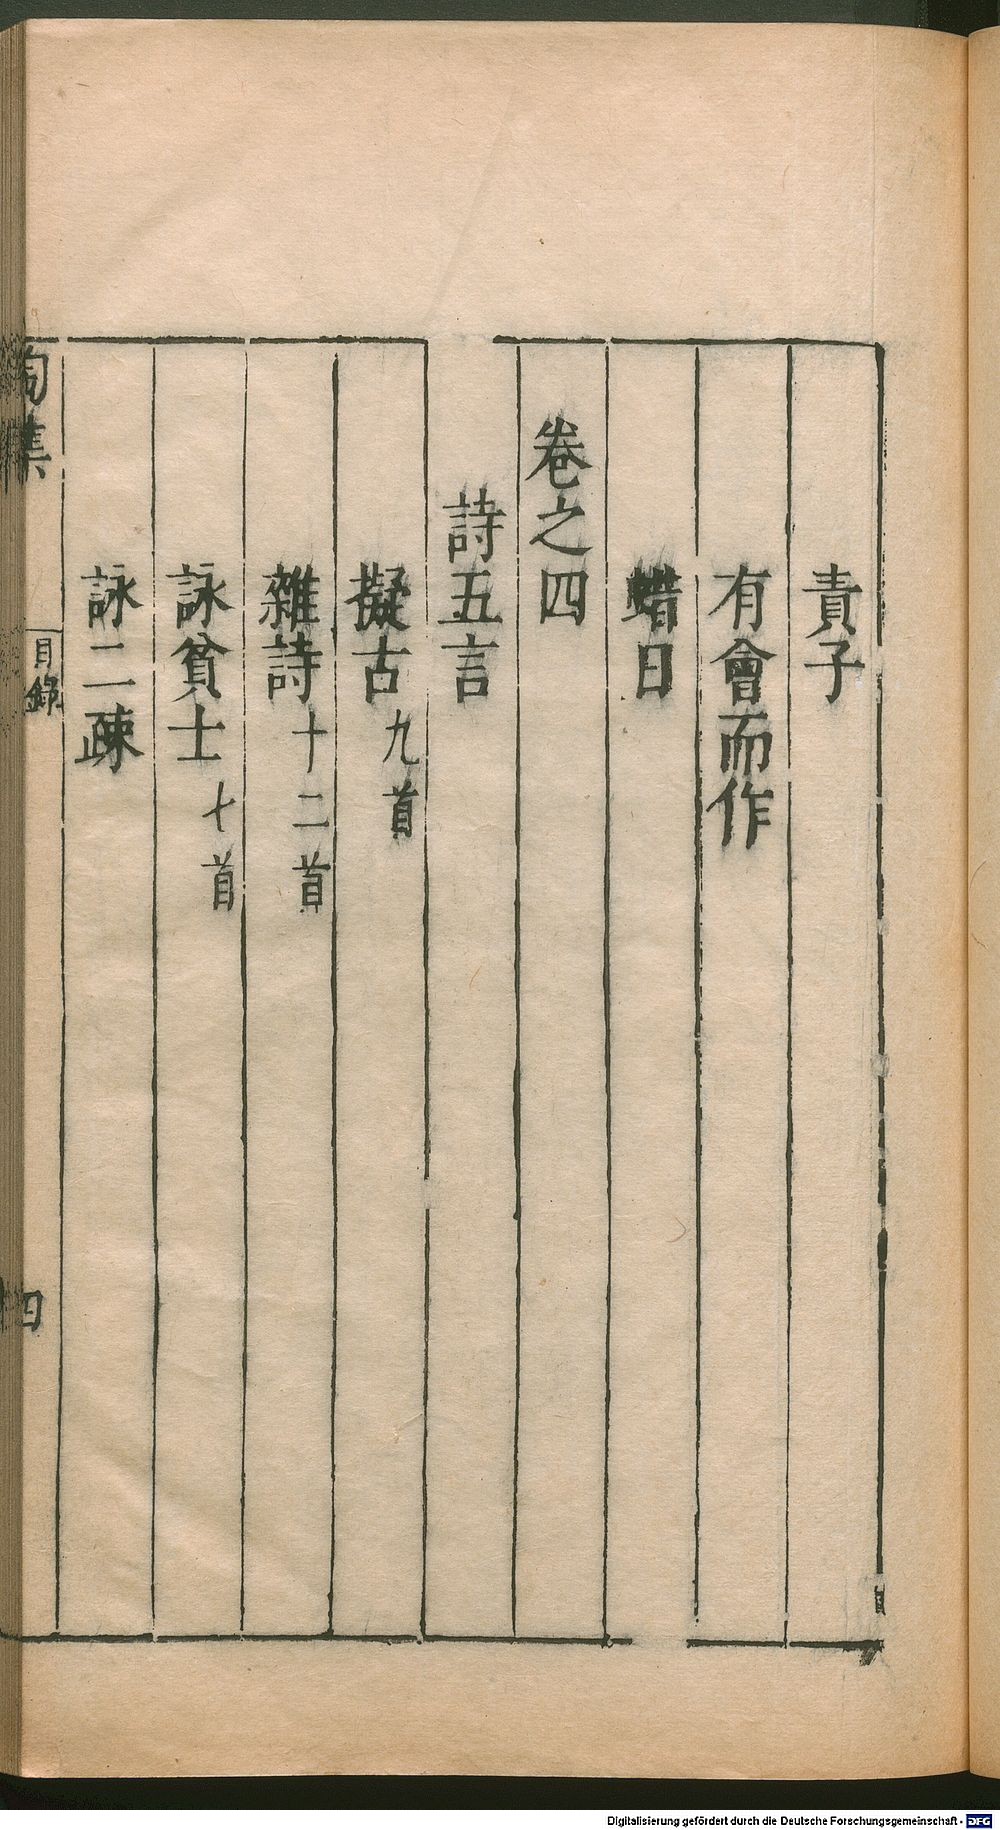 責子
有會而作
蜡日
卷之四
詩五言
擬古九首
雜詩十二首
詠貧士七首
詠二疎
陶集
目錄
四
Digitalisierung gefördert durch die Deutsche Forschungsgemeinschaft - DFG